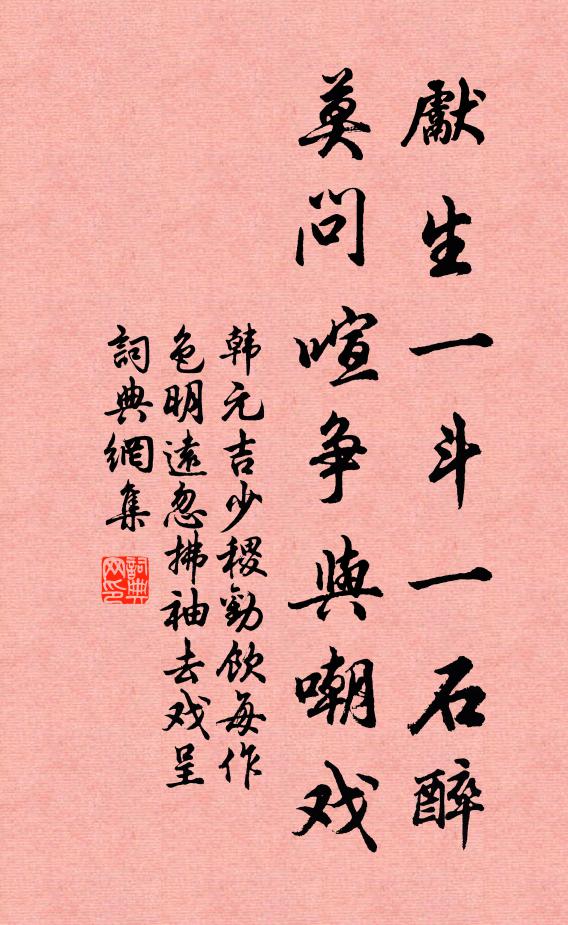 獻生一斗一石醉
莫問喧争與嘲戏
韩元吉少稷勸飲每作
色明遠忽拂袖去戏呈
詞典網集
詞典网印